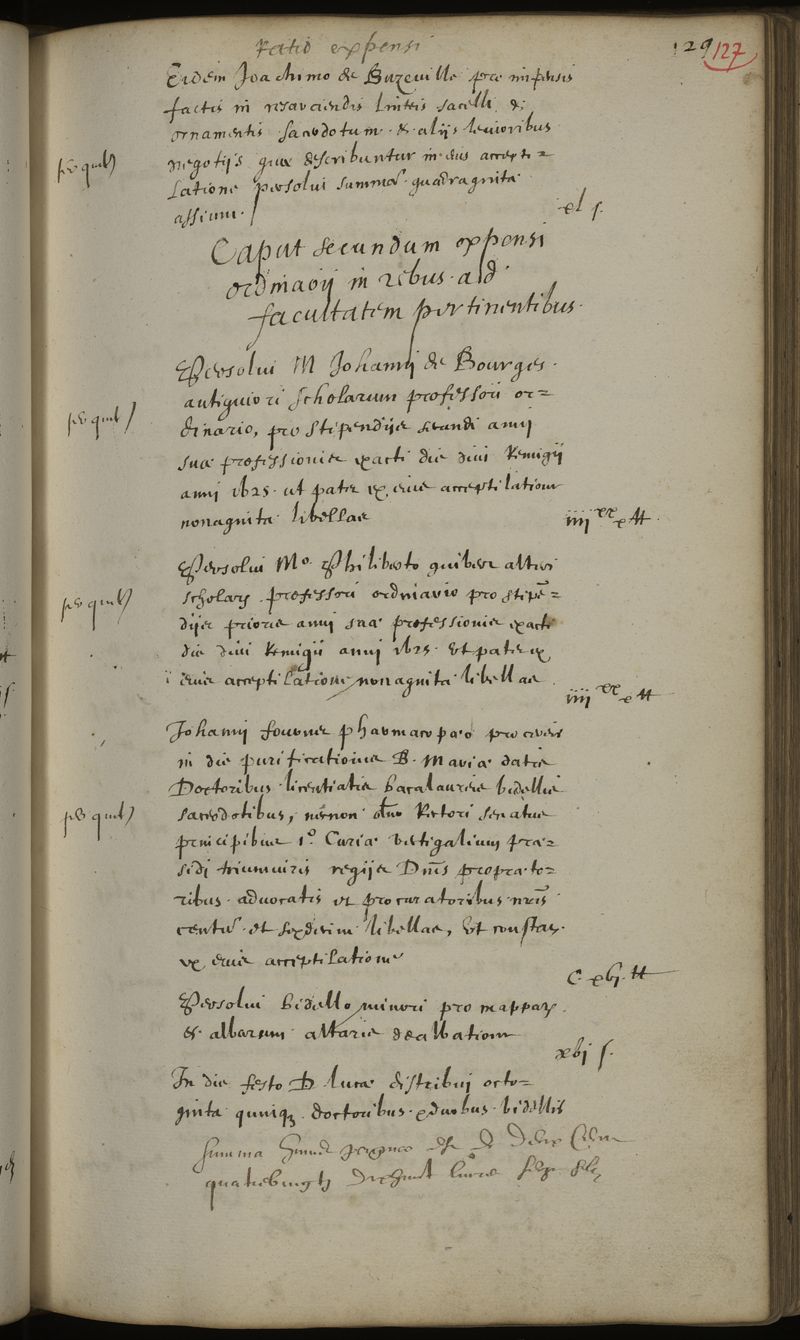 Ratio expensi
129 127
Eidem Joachimo de Buzeville pro impensis
factis in resarciendis linteis sacelli &
ornamentis sacerdotum & alijs levioribus
negotijs quæ describuntur in eius accepti=
latione persolui summa quadraginta
assium.
xl s.
Caput secundum expensi
ordinarij in rebus ad
facultatem pertinentibus.
Persolui M Johanni de Bourges
antiquiori scholarum professori or=
dinario, pro stipendijs secundi anni
suæ professionis exacti die diui Remigij
anni 1625 ut patet ex eius acceptilatione
nonaginta libellas
iiii xx x tt
Persolui Mo Philiberto guibert alteri
scholarum professori ordinario pro stipē=
dijs prioris anni suæ professionis exacti
die diui Remigij anni 1625 ut patet ex
eius acceptilatione nonaginta libellas
iiii xx x tt
Johanni pharmacopæo pro cereis
in die purificationis B. Mariæ datis
Doctoribus licentiatis bacalaureis bidellis
sacerdotibus, necnon Rectori senatus
principibus 1o Curiæ vectigalium præ=
sidi triumviris regijs
ribus aduocatis et procuratoribus nr̄is
centū et sexdecim libellas, ut constat
ex eius acceptilatione
C xbj tt
Persolui bidello minori pro mapparum
& albarum altaris dealbatione
xbj s.
In die festo D lucæ distribui octo=
ginta quinq; doctoribus & duobus bidellis
summa